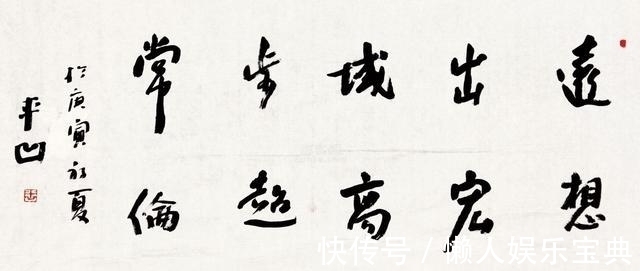 遠想
出宏
域高
步超
常倫
於庚寅初夏
平凹
快传号 / 懒人娱乐宝典